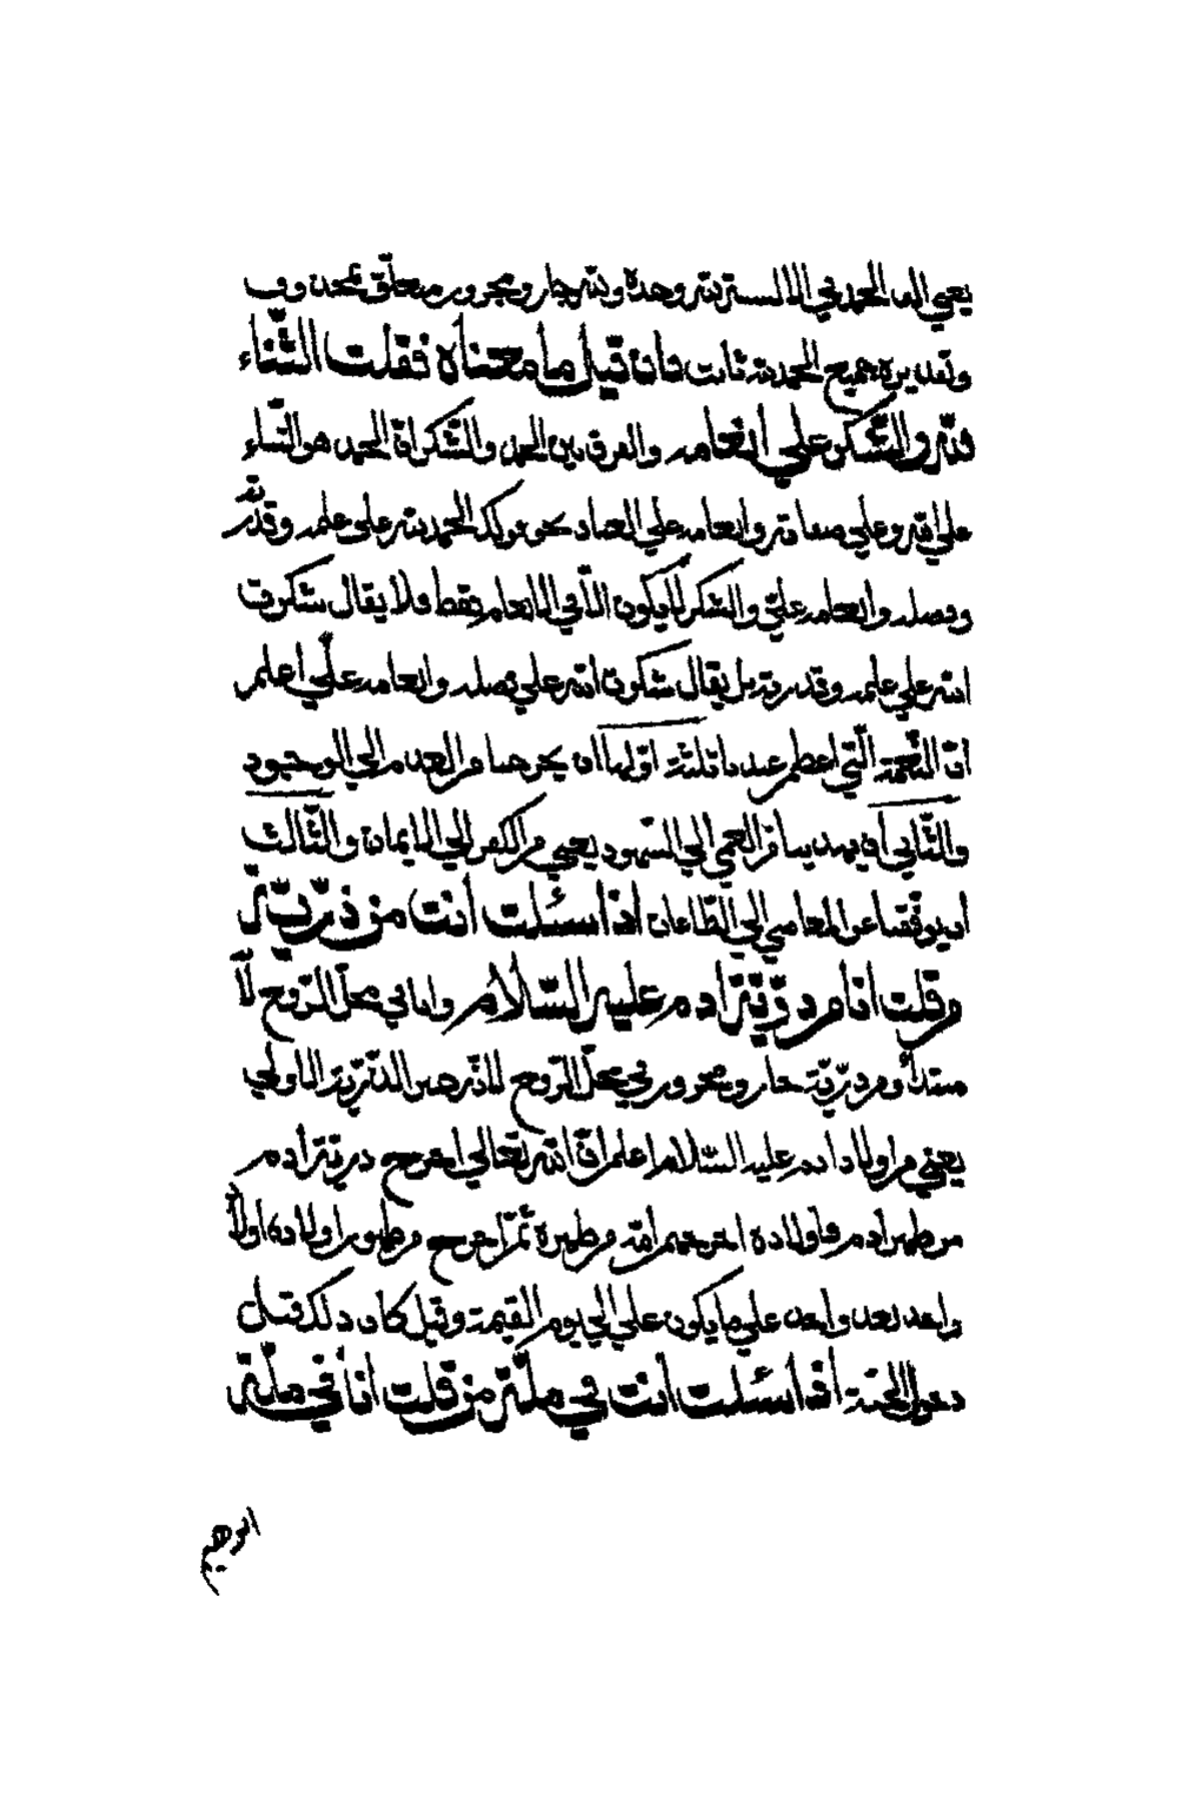 يعني الف الحمد في الالسنة لله وحده ولله جار ومجرور متعلق بمحذوف
وتقديره جميع الحمد لله ثابت فان قيل ما معناه فقلت الثناء
لله والشكر علي انعامه والفرق بين الحمد والشكر انّ الحمد هو الثناء
علي الله وعلي صفاته وانعامه علي العباد نحو قولك الحمد لله علي علمه وقدرته
وفضله وانعامه عليّ والشكر لا يكون الّا في الانعام فقط فلا يقال شكرت
الله علي علمه وقدرته بل يقال شكرت الله علي فضله وانعامه عليّ اعلم
انّ النّعمة الّتي اعظم عندنا ثلثة اوّلها ان يخرجنا من العدم الي الوجود
والثّاني ان يهدينا من العمي الي الشهود يعني من الكفر الي الايمان والثّالث
ان يوفّقنا عن المعاصي الي الطّاعات اذا سئلت انت من ذرّيّة
من قلت انا من ذرّيّة ادم عليه السّلام وانا في محلّ الرّفع لانّه
مبتدأ ومن ذرّيّة جار ومجرور في محلّ الرّفع لانّه خبر الذّرّيّة الاولي
يعني من اولاد ادم عليه السّلام اعلم انّ الله تعالي اخرج ذريّة ادم
من ظهر ادم فاولاده اخرجهم الله من ظهره ثمّ اخرج من ظهور اولاده اولاد
واحد بعد واحد علي ما يكون علي الي يوم القيمة وقيل كان ذلك قبل
دخول الجنّة اذا سئلت انت في ملّة من قلت انا في ملّة
ابرهيم